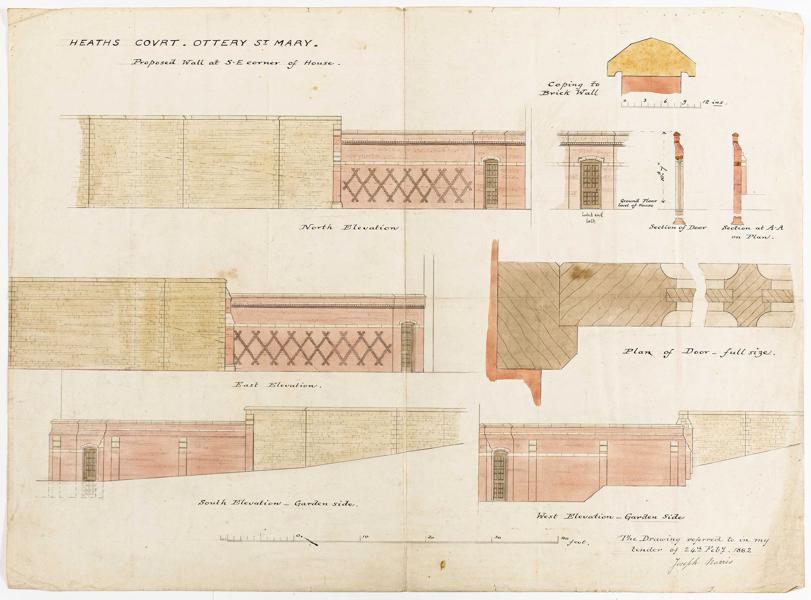 HEATHS COVRT. OTTERY ST MARY.
Proposed Wall at S.E corner of House.
Coping to
Brick Wall
0 3 6 9 12 ins.
North Elevation
Ground Floor
level of House
Section of Door
Section at A.A
on Plan.
East Elevation.
Plan of Door - full size.
South Elevation - Garden side.
West Elevation - Garden Side
10 20 30 feet.
The Drawing referred to in my
tender of 24th Feby. 1882
Joseph Norris